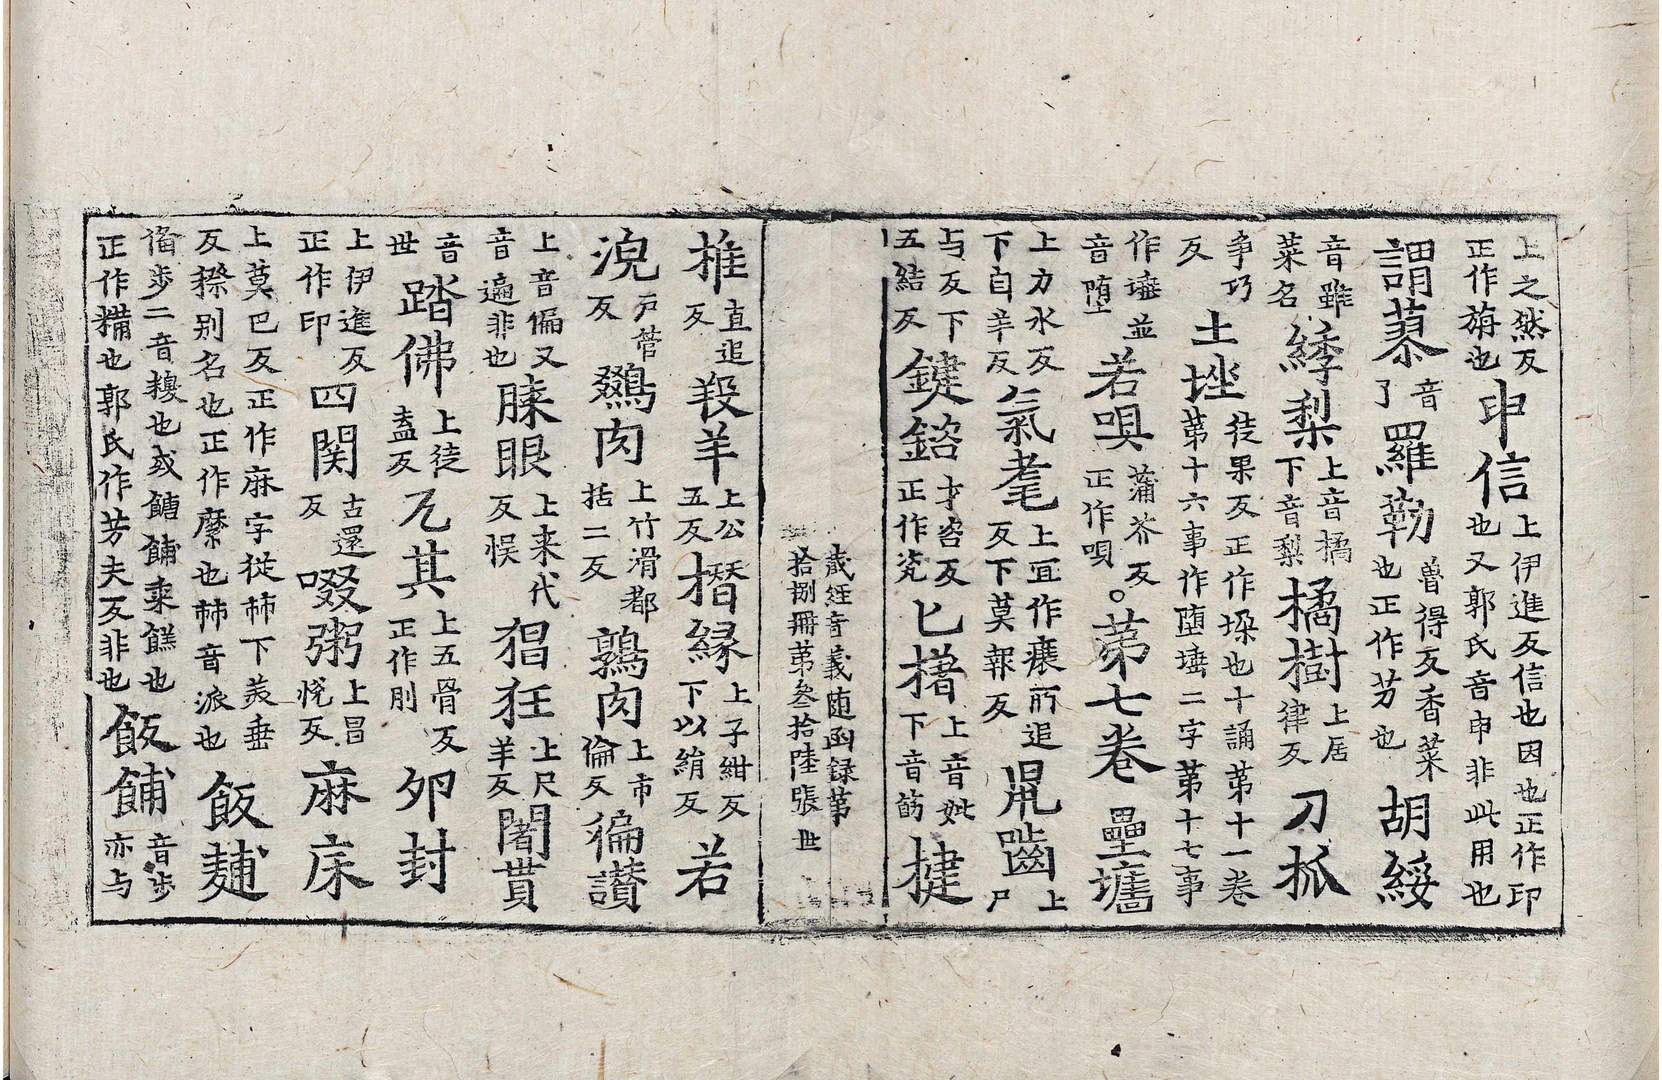 上之然反正作旃也申信上伊進反信也因也正作印也又郭氏音申非此用也
謂蔘音了羅勒魯得反香菜也正作艻也胡綏
音雖菜名綉梨上音橘下音梨橘樹上居律反刀抓
爭巧反土埵徒果反正作垛也十誦第十一卷第十六事作墮埵二字第十七事
作埵並音堕若嗅蒲芥反正作唄。第七卷壘墻
上力水反下自羊反氣耄上宜作瘝所追反下莫報反鼡齧上尸
与反下五結反鍵鎔才咨反正作瓷匕楮上音妣下音筯揵
藏經音義随函録第
拾捌冊第叁拾陸張 世
椎直追反羖羊上公五反㨱縁上子紺反下以絹反若
浼戸管反鵽肉上竹滑都括二反鶉肉上市倫反徧讃
上音偏又音遍非也睞眼上来代反悮猖狂上尺羊反闍貰
音世踏佛上徒盍反兀其上五骨反正作刖夘封
上伊進反正作印四関古還反啜粥上昌悅反麻床
上莫巴反正作麻字従𣏟下羙垂反穄别名也正作糜也𣏟音派也飯麱
俻步二音糗也或餹餔桒餻也正作糒也郭氏作芳夫反非也飯餔音步亦与